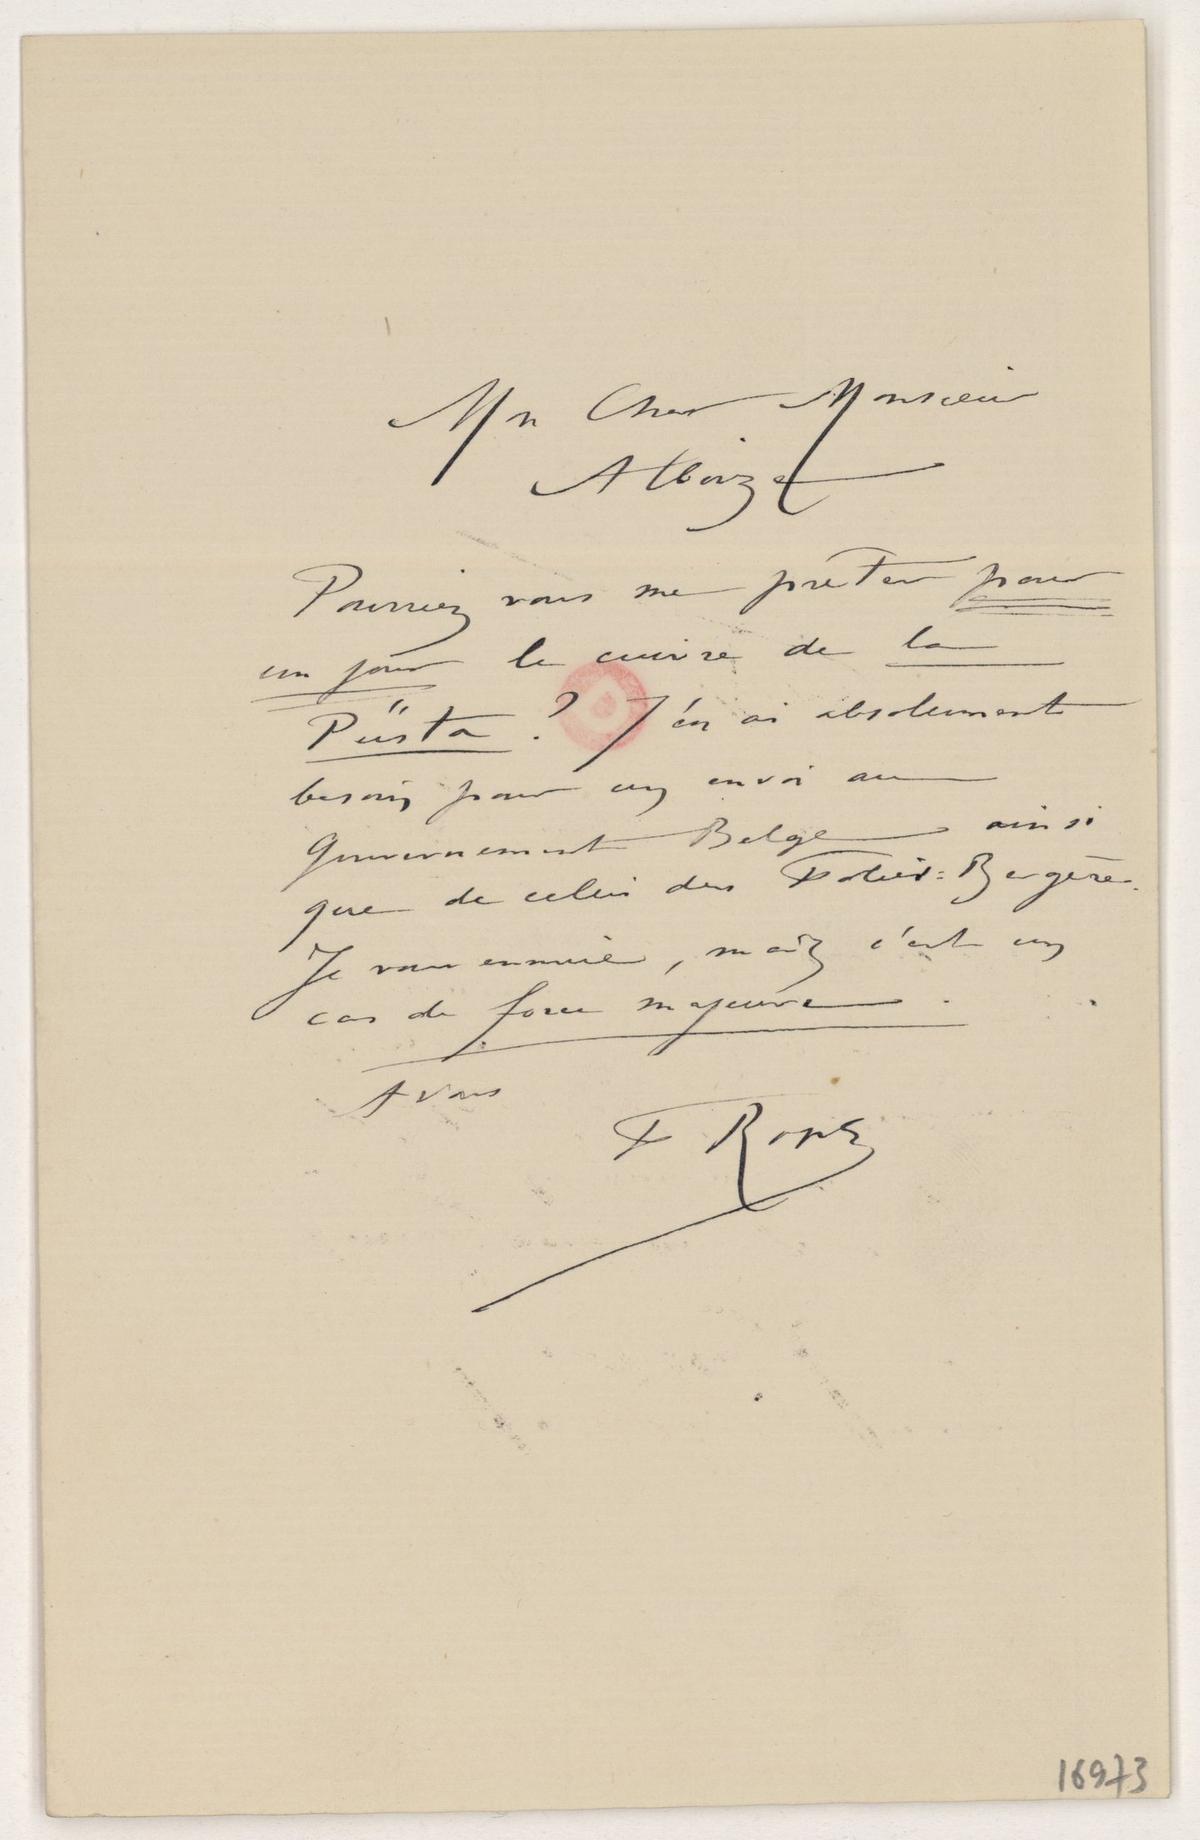 Mn Cher Monsieur
Alboize
Pourriez vous me prêter pour
un jour le cuivre de la
Püsta ? J'en ai absolument
besoin pour un envoi au
Gouvernement Belge ainsi
que de celui des Folies=Bergère.
Je vous ennuie, mais c'est un
cas de force majeure.
A vous
F Rops
16973